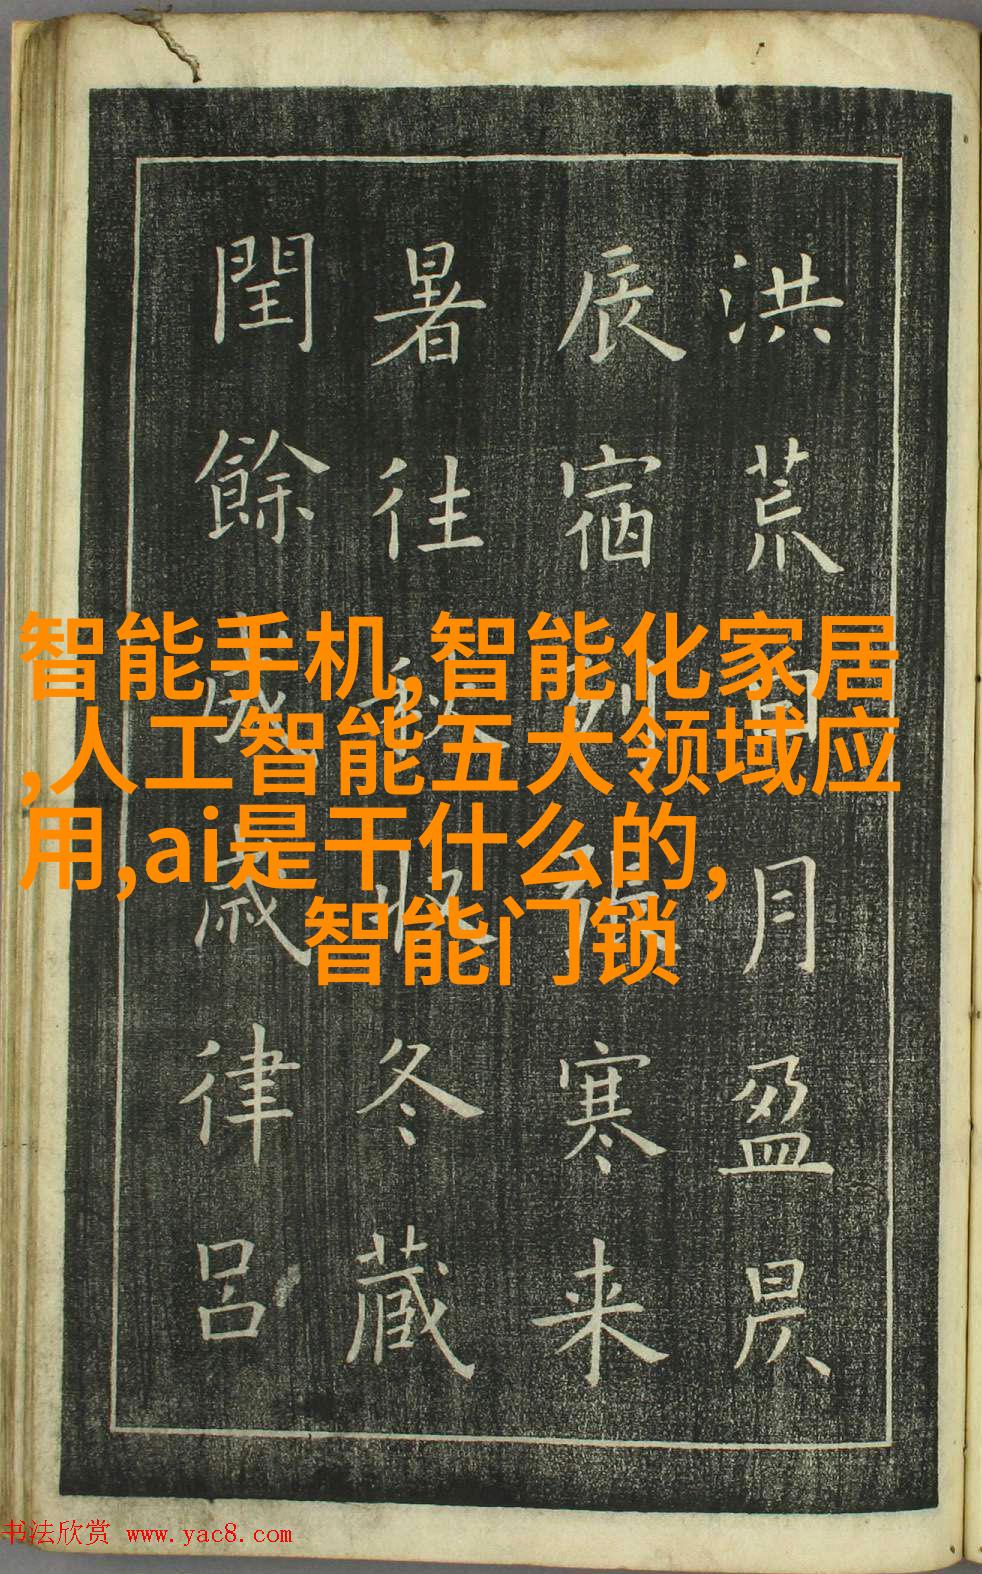 洪荒日月盈昃
辰宿列張寒来
暑往秋收冬藏
閏餘成歲律呂
智能手机,智能化家居
,人工智能五大领域应
用,ai是干什么的,
智能门锁
书法欣赏 www.yac8.com